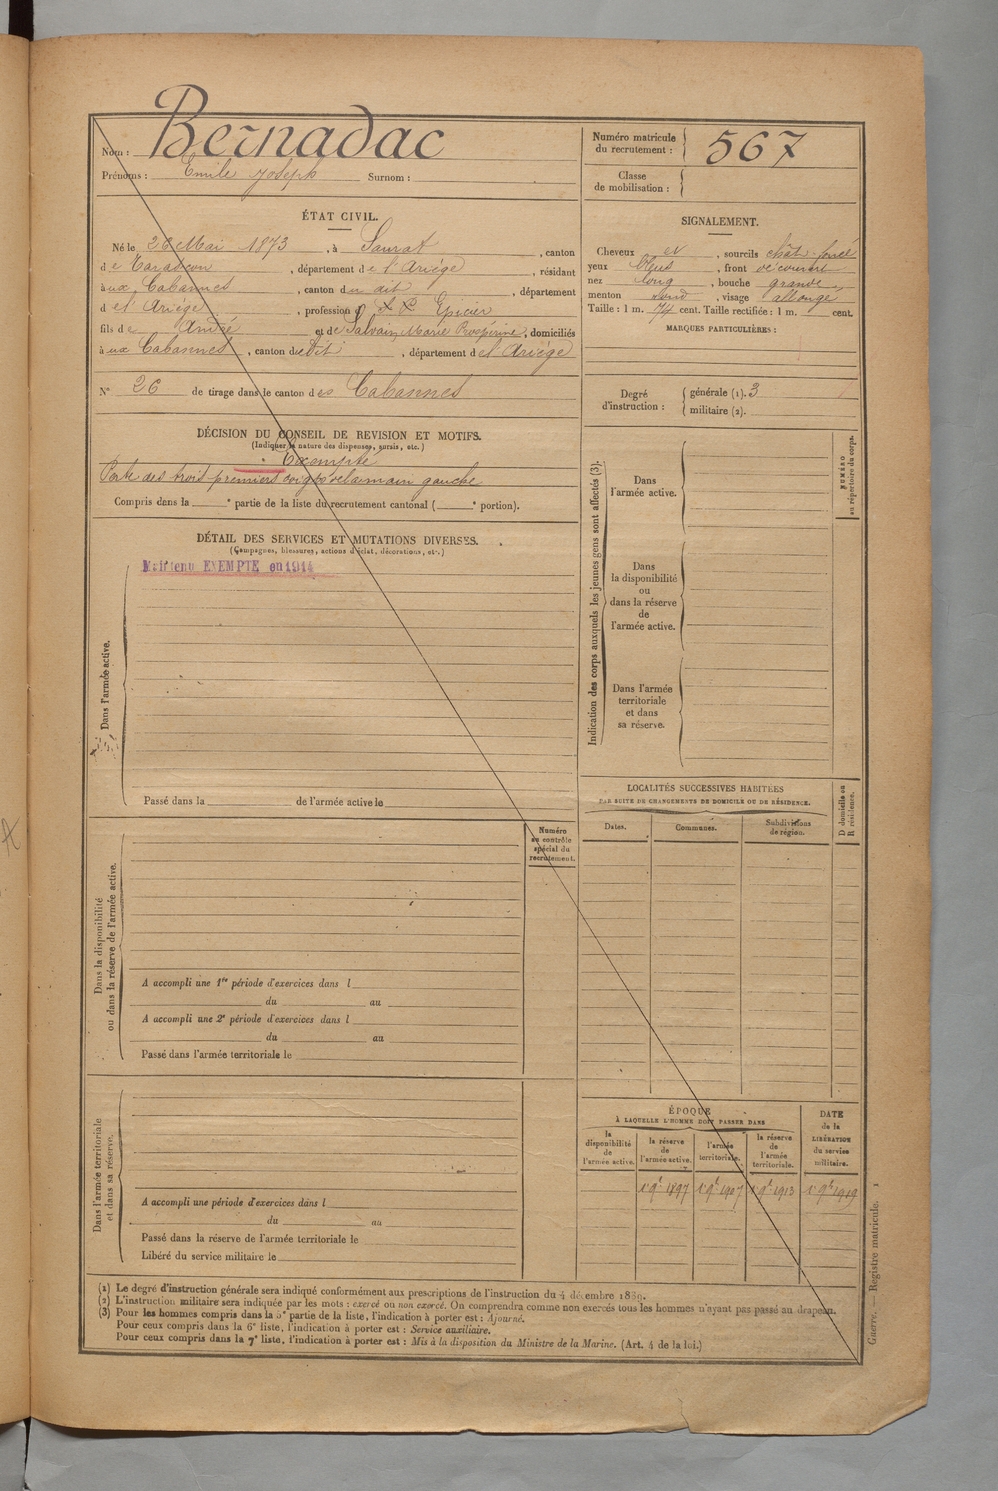 Nom : Bernadac
Prénoms : Emile Joseph Surnom :
Numéro matricule
du recrutement : 567
Classe
de mobilisation :
ÉTAT CIVIL.
Né le 26 Mai 1873, à Saurat, canton
de Tarascon, département de l'Ariége, résidant
aux Cabannes, canton du dit, département
de l'Ariége, profession d Epicier
fils de André et de Salvaing Marie Prospérine, domiciliés
à aux Cabannes, canton du dit, département de l'Ariége
N° 26 de tirage dans le canton des Cabannes
SIGNALEMENT.
Cheveux et, sourcils chât. foncé
yeux bleus, front découvert
nez long, bouche grande
menton rond, visage allongé
Taille : 1 m. 74 cent. Taille rectifiée : 1 m. cent.
MARQUES PARTICULIÈRES :
Degré
d'instruction :
générale (1). 3
militaire (2).
DÉCISION DU CONSEIL DE REVISION ET MOTIFS.
(Indiquer la nature des dispenses, sursis, etc.)
Exempté
Perte des trois premiers doigts de la main gauche
Compris dans la e partie de la liste du recrutement cantonal ( e portion).
DÉTAIL DES SERVICES ET MUTATIONS DIVERSES.
(Campagnes, blessures, actions d'éclat, décorations, etc.)
Maintenu EXEMPTE en 1914
Dans l'armée active.
Passé dans la de l'armée active le
Numéro
au contrôle
spécial du
recrutement.
Dans la disponibilité
ou dans la réserve de l'armée active.
A accompli une 1re période d'exercices dans l
du au
A accompli une 2e période d'exercices dans l
du au
Passé dans l'armée territoriale le
Dans l'armée territoriale
et dans sa réserve.
A accompli une période d'exercices dans l
du au
Passé dans la réserve de l'armée territoriale le
Libéré du service militaire le
Indication des corps auxquels les jeunes gens sont affectés (3).
Dans
l'armée active.
Dans
la disponibilité
ou
dans la réserve
de
l'armée active.
Dans l'armée
territoriale
et dans
sa réserve.
NUMÉRO
au répertoire du corps.
LOCALITÉS SUCCESSIVES HABITÉES
PAR SUITE DE CHANGEMENTS DE DOMICILE OU DE RÉSIDENCE.
Dates.
Communes.
Subdivisions
de région.
D domicile ou
R résidence.
ÉPOQUE
À LAQUELLE L'HOMME DOIT PASSER DANS
DATE
de la
LIBÉRATION
du service
militaire.
la
disponibilité
de
l'armée active.
la réserve
de
l'armée active.
l'armée
territoriale.
la réserve
de
l'armée
territoriale.
1 9bre 1897 1 9bre 1907 1 9bre 1913 1 9bre 1919
(1) Le degré d'instruction générale sera indiqué conformément aux prescriptions de l'instruction du 4 décembre 1889.
(2) L'instruction militaire sera indiquée par les mots : exercé ou non exercé. On comprendra comme non exercés tous les hommes n'ayant pas passé au drapeau.
(3) Pour les hommes compris dans la 5e partie de la liste, l'indication à porter est : Ajourné.
Pour ceux compris dans la 6e liste, l'indication à porter est : Service auxiliaire.
Pour ceux compris dans la 7e liste, l'indication à porter est : Mis à la disposition du Ministre de la Marine. (Art. 4 de la loi.)
Guerre. — Registre matricule. 1